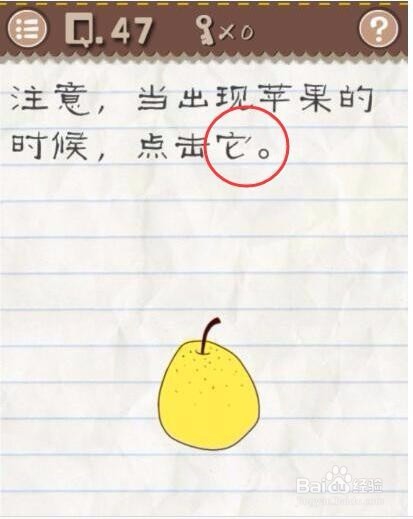 Q.47
×0
?
注意，当出现苹果的
时候，点击它。
Baidu经验